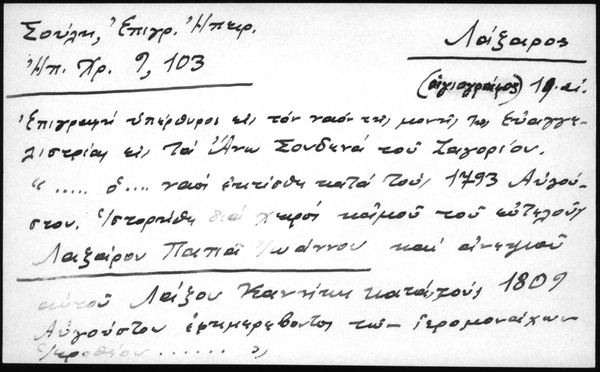 Σούλη, Ἐπιγρ. Ἠπειρ.
Λάζαρος
Ἠπ. Χρ. 9, 103
(ἁγιογράφος) 19 αἰ.
Ἐπιγραφή ὑπέρθυρος εἰς τόν ναόν τῆς μονῆς τῆς Εὐαγγε-
λιστρίας εἰς τά Ἄνω Σουδενά τοῦ Ζαγορίου.
"..... ὁ.... ναός ἐκτίσθη κατά τούς 1793 Αὐγού-
στου. Ἱστορήθη διά χειρός κἀμοῦ τοῦ εὐτελοῦς
Λαζάρου Παπᾶ Ἰωάννου καί ἀνεψιοῦ
αὐτοῦ Λάζου κατά τούς 1809
Αὐγούστου ἐφημερεβοντος τῶν ἱερομονάχων
Ἱεροθέου ...... "